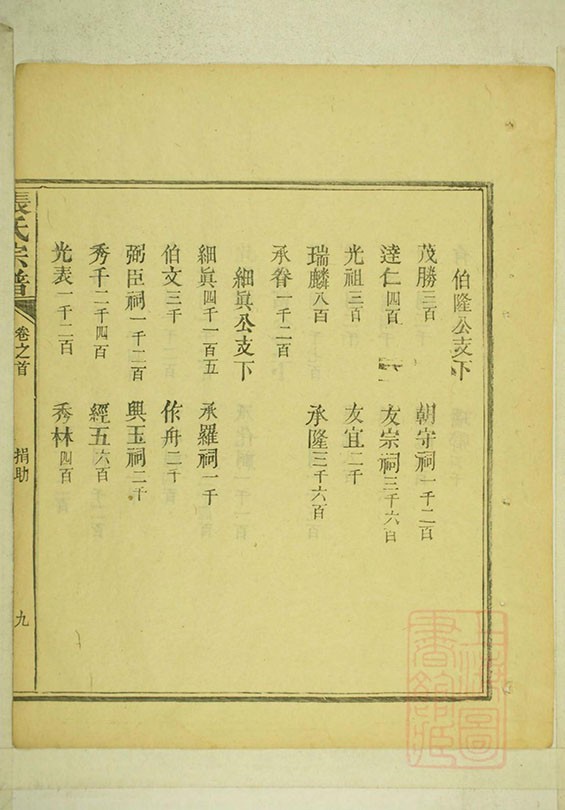 伯隆公支下
茂勝三百 朝守祠一千二百
達仁四百 友宗祠三千六百
光祖三百 友宜二千
瑞麟八百 承隆三千六百
承眷一千二百
細眞公支下
細眞四千一百五 承羅祠一千
伯文三千 作舟二千
弼臣祠一千二百 興玉祠二千
秀千二千四百 經五六百
光表一千二百 秀林四百
張氏宗譜 卷之首 捐助 九